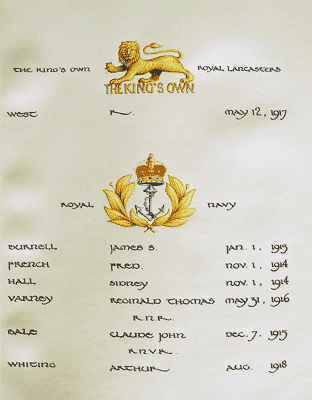 THE KING'S OWN ROYAL LANCASTERS
THE KING'S OWN
WEST R. MAY 12, 1917
ROYAL NAVY
BURNELL JAMES S. JAN. 1, 1915
FRENCH FRED. NOV. 1, 1914
HALL SIDNEY NOV. 1, 1914
VARNEY REGINALD THOMAS MAY 31, 1916
R.N.R.
BALE CLAUDE JOHN DEC. 7, 1915
R.N.V.R.
WHITING ARTHUR AUG. 1918